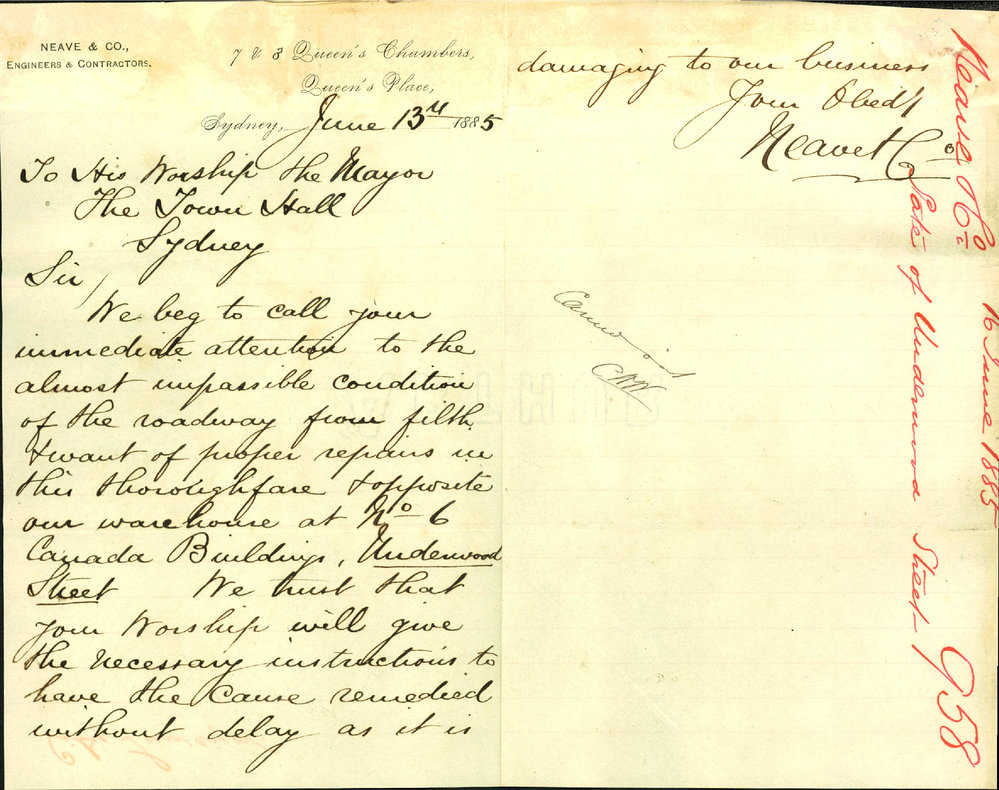 NEAVE & CO.,
ENGINEERS & CONTRACTORS.
7 & 8 Queen's Chambers,
Queen's Place,
Sydney, June 13th 1885
To His Worship the Mayor
The Town Hall
Sydney
Sir,
We beg to call your
immediate attention to the
almost impassible condition
of the roadway from filth
& want of proper repairs in
this thoroughfare & opposite
our warehouse at No 6
Canada Buildings, Underwood
Street We trust that
your Worship will give
the necessary instructions to
have the cause remedied
without delay as it is
damaging to our business
Your Obed't
Neave & Co
Neave & Co
16 June 1885
State of Underwood Street
958